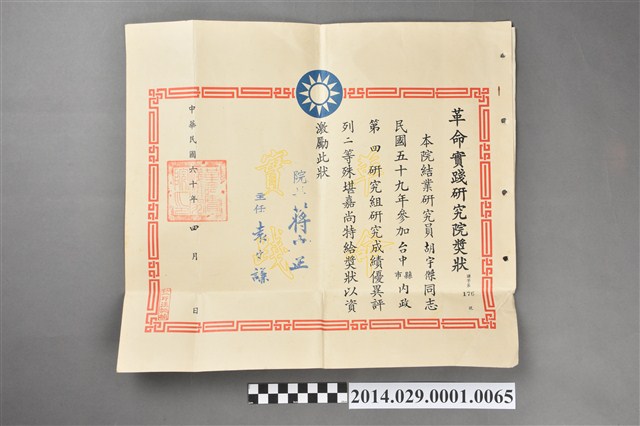 革命實踐研究院獎狀
176
號
本院結業研究員胡宇傑同志
民國五十九年參加台中縣市內政
第四研究組研究成績優異評
列二等殊堪嘉尚特給獎狀以資
激勵此狀
院長 蔣中正
主任 袁守謙
中華民國六十年四月 日
實踐
2014.029.0001.0065